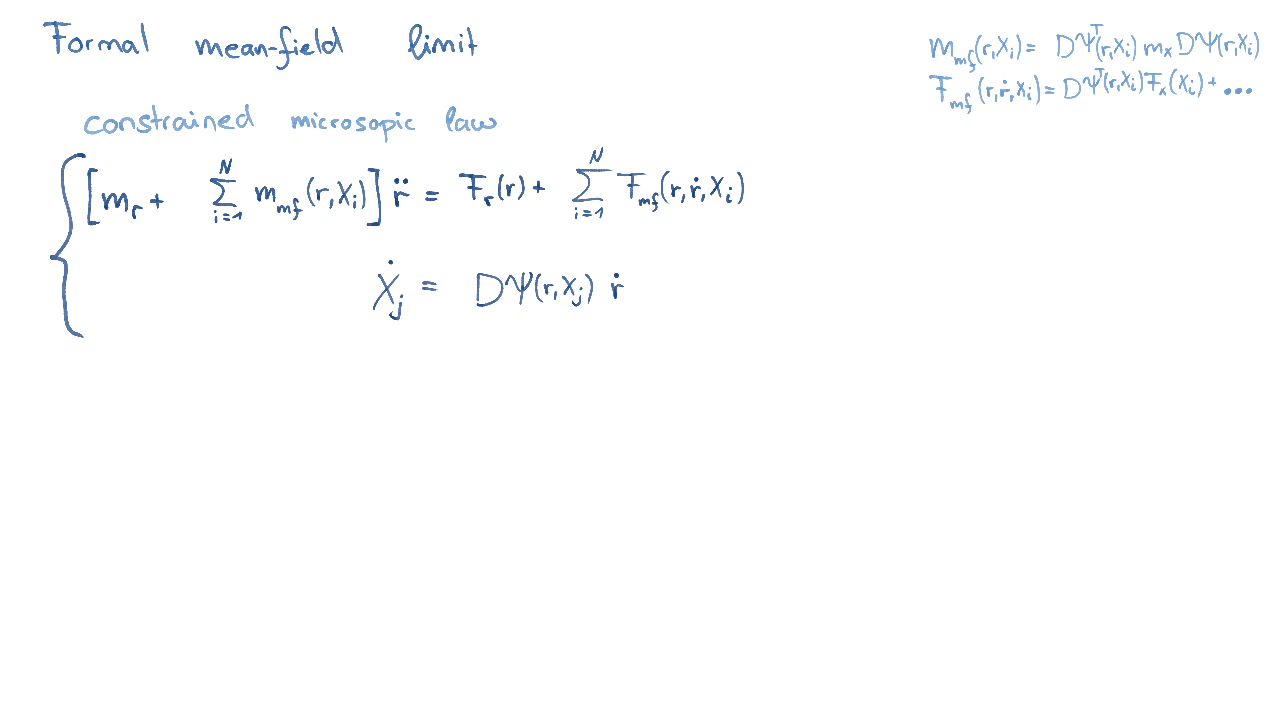 Formal mean-field limit
m_mf(r,X_i) = DΨ^T(r,X_i) m_x DΨ(r,X_i)
F_mf(r,ṙ,X_i) = DΨ^T(r,X_i) F_x(X_i) + ...
constrained microsopic law
{ [m_r + ∑_{i=1}^N m_mf(r,X_i)] r̈ = F_r(r) + ∑_{i=1}^N F_mf(r,ṙ,X_i)
Ẋ_j = DΨ(r,X_j) ṙ